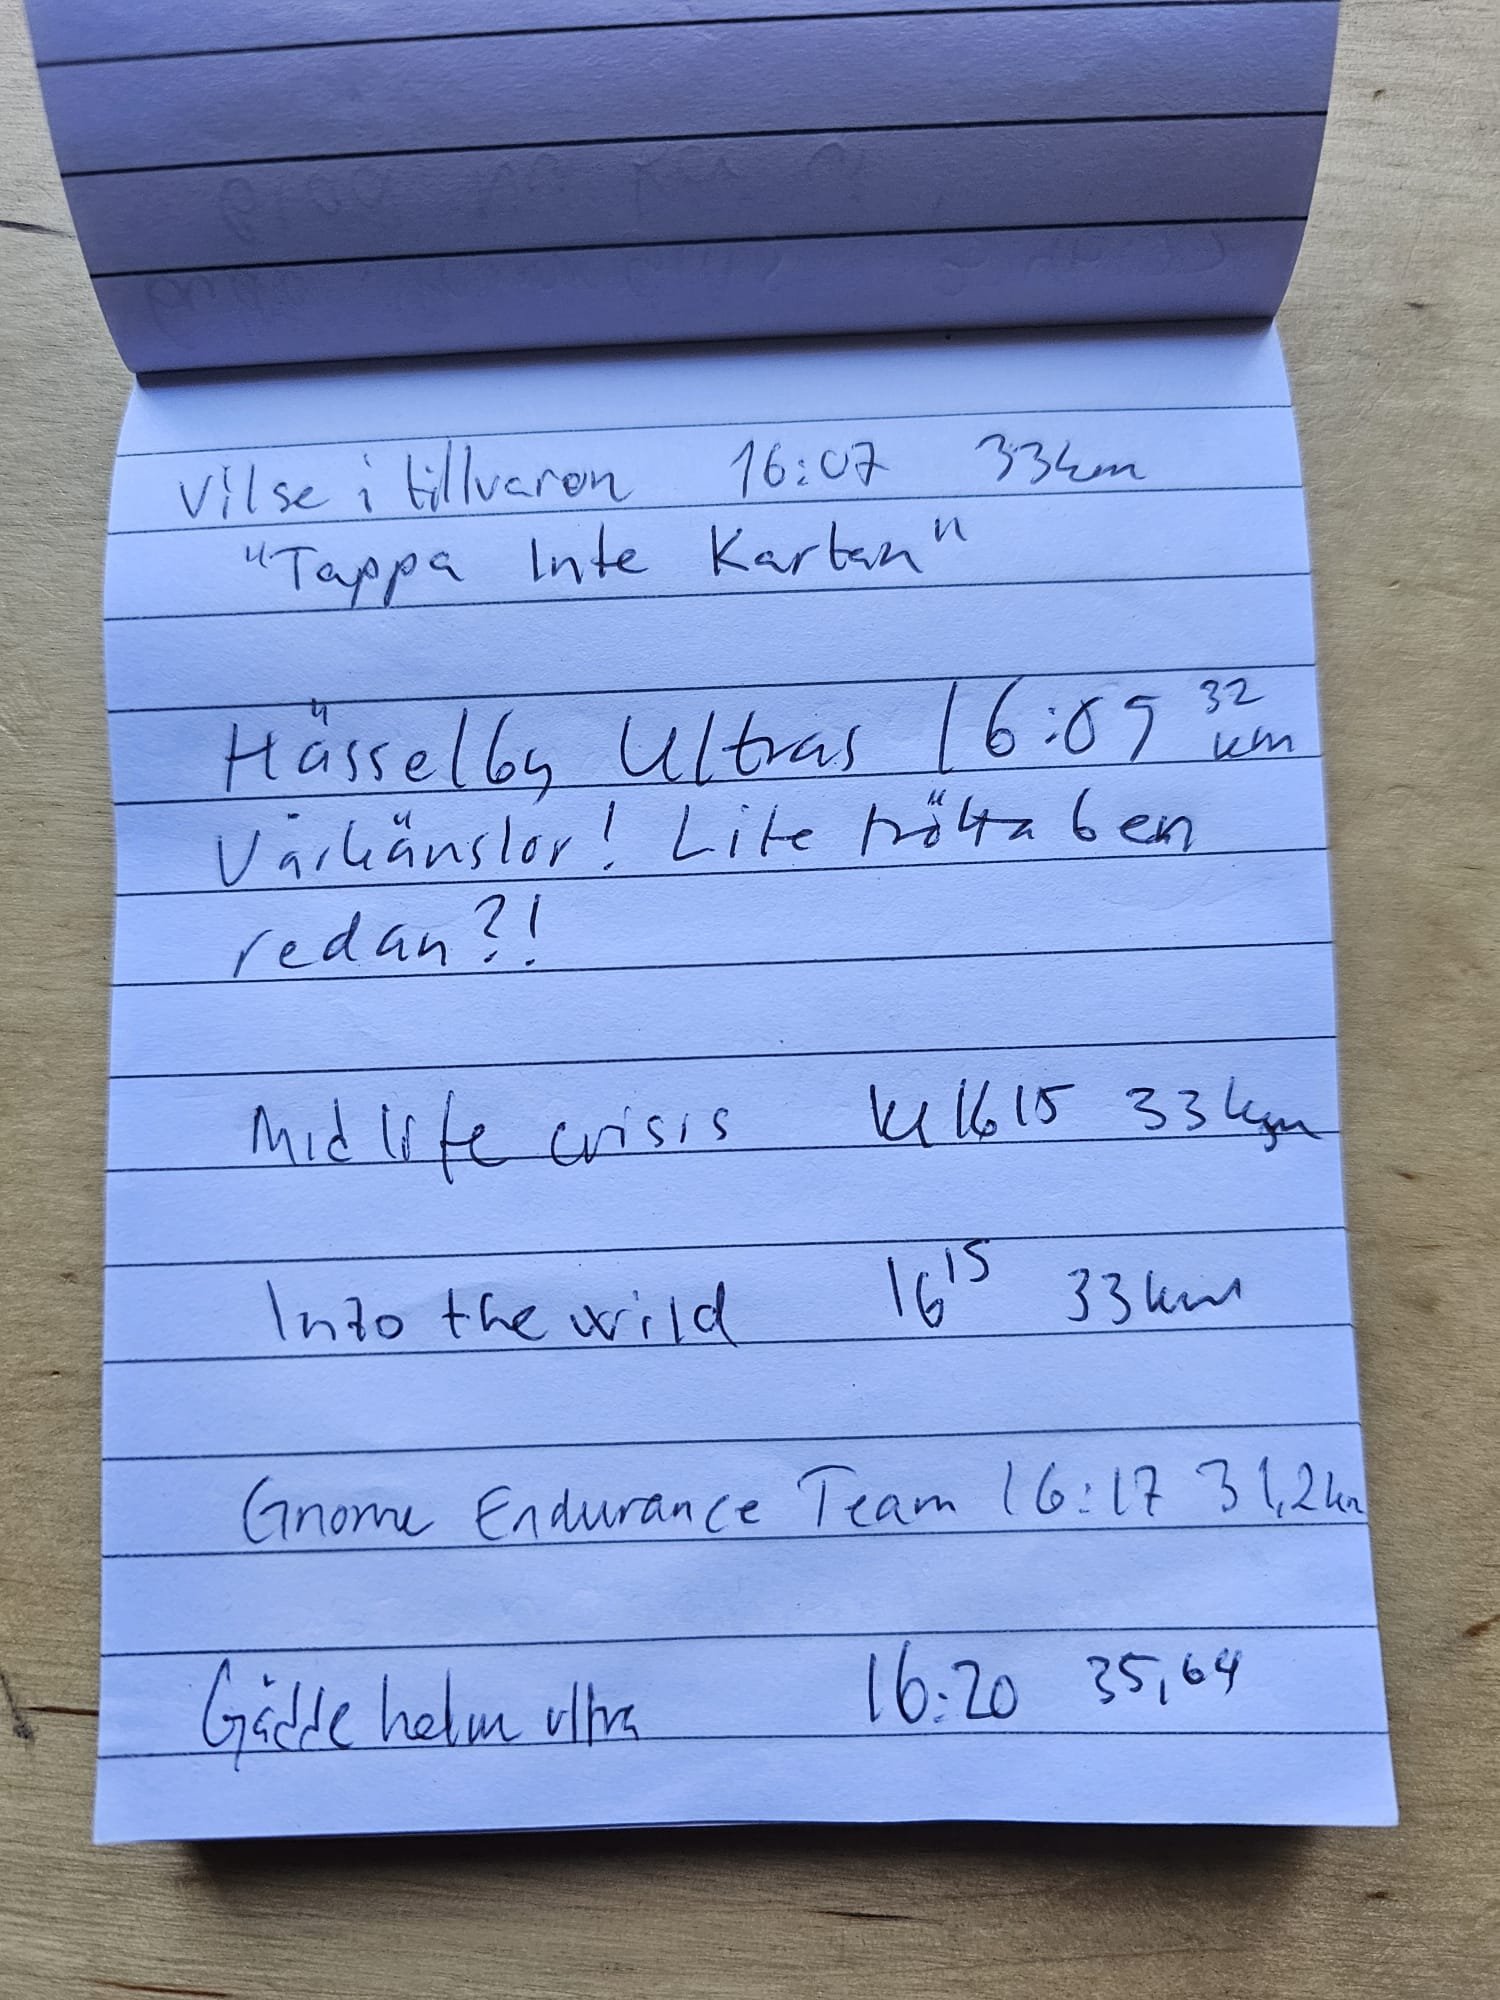 Vilse i tillvaron 16:07 33km
"Tappa Inte Kartan"
Hässelby Ultras 16:09 32 km
Vårkänslor! Lite trötta ben
redan?!
Midlife crisis kl 16 15 33 km
Into the wild 16 15 33 km
Gnome Endurance Team 16:17 31,2 km
Gäddeholm ultra 16:20 35,64